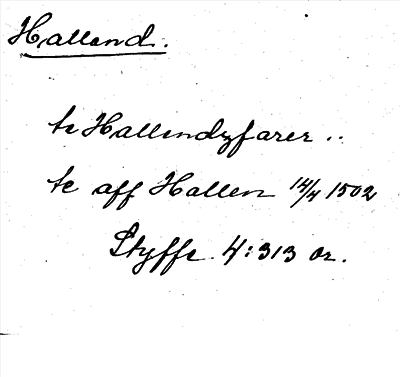 Halland.
te Hallendzfarer ..
te aff Hallen 14/4 1502
Styffe. 4:313 or.